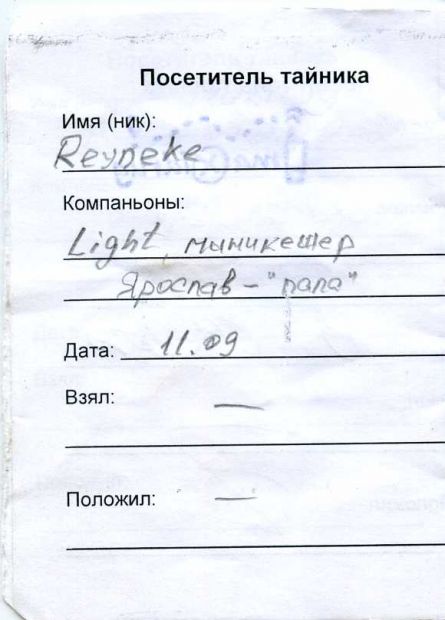 Посетитель тайника
Имя (ник):
Reyneke
Компаньоны:
Light, миникешер
Ярослав – "папа"
Дата: 11.09
Взял: —
Положил: —